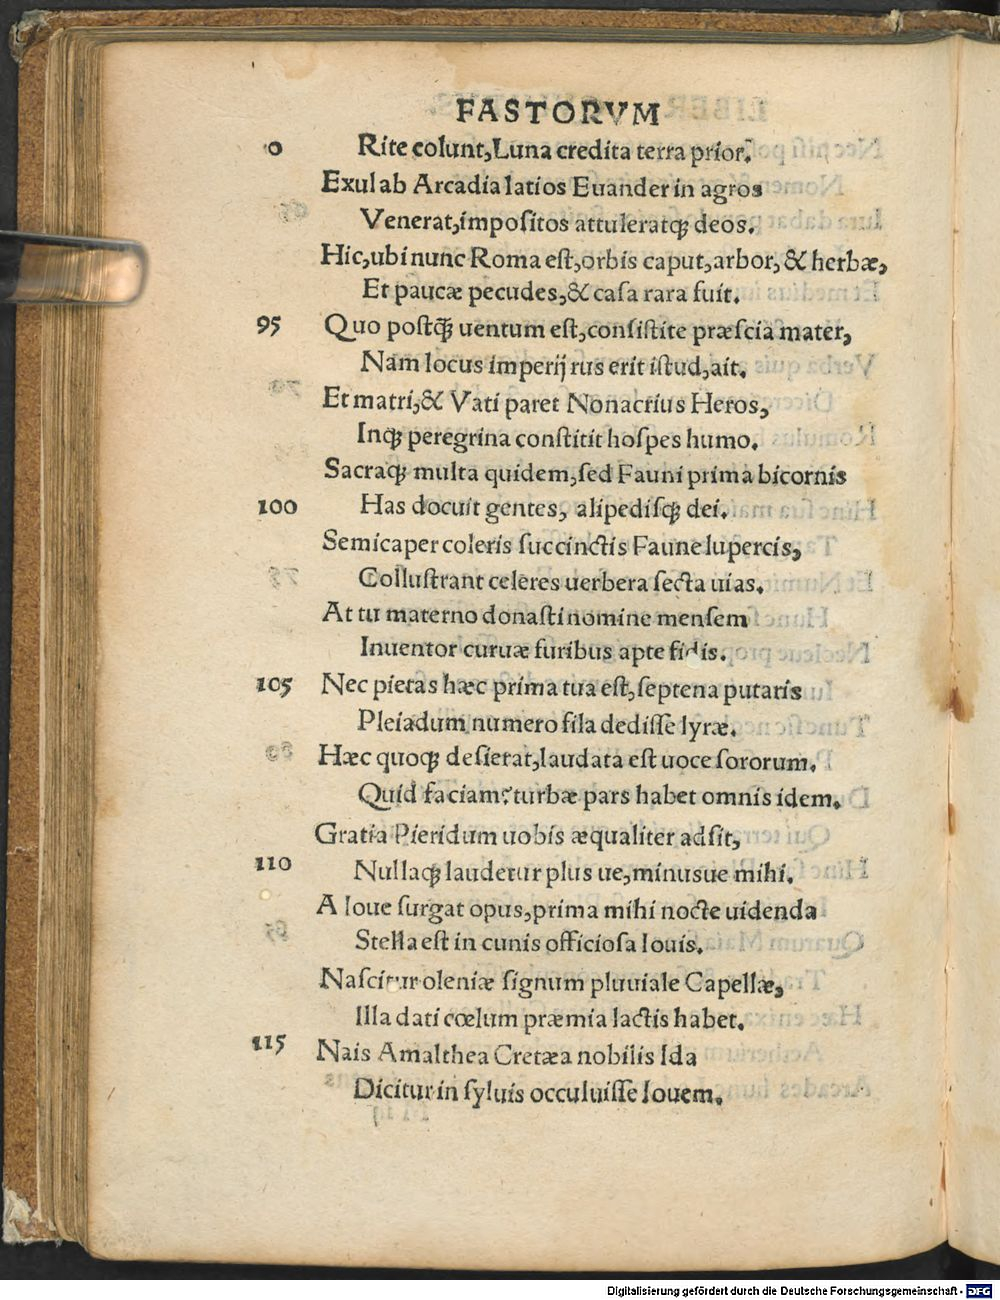 FASTORVM
0 Rite colunt,Luna credita terra prior.
Exul ab Arcadia latios Euander in agros
Venerat,impoſitos attuleratq; deos.
Hic,ubi nunc Roma eſt,orbis caput,arbor,& herbæ,
Et paucæ pecudes,& caſa rara fuit.
95 Quo poſtq̃ uentum eſt,conſiſtite præſcia mater,
Nam locus imperij rus erit iſtud,ait.
Et matri,& Vati paret Nonacrius Heros,
Inq; peregrina conſtitit hoſpes humo.
Sacraq; multa quidem,ſed Fauni prima bicornis
100 Has docuit gentes, alipediſq; dei.
Semicaper coleris ſuccinctis Faune lupercis,
Colluſtrant celeres uerbera ſecta uias.
At tu materno donaſti nomine menſem
Inuentor curuæ furibus apte fidis.
105 Nec pietas hæc prima tua eſt,ſeptena putaris
Pleiadum numero fila dediſſe lyræ.
Hæc quoq; deſierat,laudata eſt uoce ſororum.
Quid faciam?turbæ pars habet omnis idem.
Gratia Pieridum uobis æqualiter adſit,
110 Nullaq; laudetur plus ue,minusue mihi.
A Ioue ſurgat opus,prima mihi nocte uidenda
Stella eſt in cunis officioſa Iouis.
Naſcitur oleniæ ſignum pluuiale Capellæ,
Illa dati cœlum præmia lactis habet.
115 Nais Amalthea Cretæa nobilis Ida
Dicitur in ſyluis occuluiſſe Iouem.
Digitalisierung gefördert durch die Deutsche Forschungsgemeinschaft - DFG